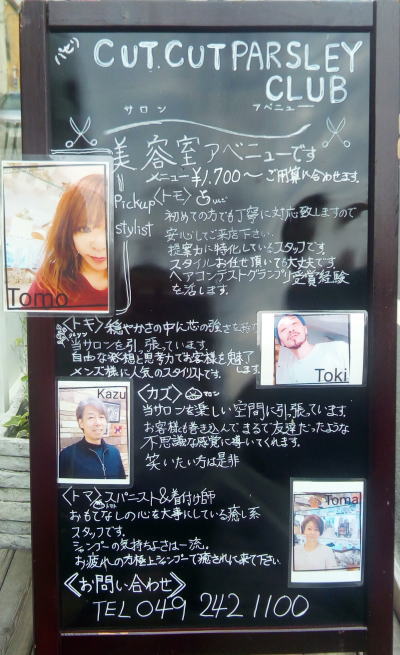 パセリ
CUT.CUT PARSLEY
CLUB
サロン アベニュー
美容室アベニューです
メニュー ¥1,700～ご用算に合わせます。
Pickup
stylist
〈トモ〉
初めての方でも丁寧に対応致しますので
安心してご来店下さい。
提案力に特化しているスタッフです
スタイルお任せ頂いても大丈夫です
ヘアコンテストグランプリ受賞経験
を活します。
Tomo
〈トキ〉穏やかさの中に芯の強さを
当サロンを引っ張っています。
自由な発想と思考力でお客様を魅了
します。
メンズ様に人気のスタイリストです。
Toki
Kazu
〈カズ〉
当サロンを楽しい空間に引っ張っています。
お客様も巻き込んでまるで友達だったような
不思議な感覚に導いてくれます。
笑いたい方は是非
〈トマ〉スパニスト&着付け師
おもてなしの心を大事にしている癒し系
スタッフです。
シャンプーの気持ちよさは一流。
お疲れの方極上シャンプーで癒されに来て下さい
Toma
〈お問い合わせ〉
TEL 049 242 1100